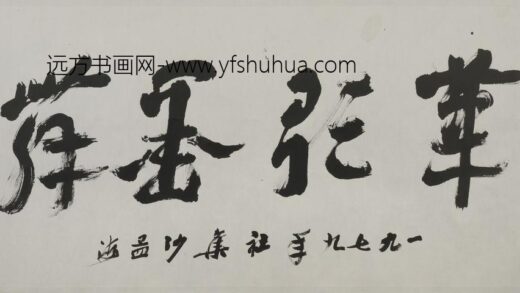 远方书画网-www.yfshuhua.com
筆歌墨舞
一九七九年社集沙孟海